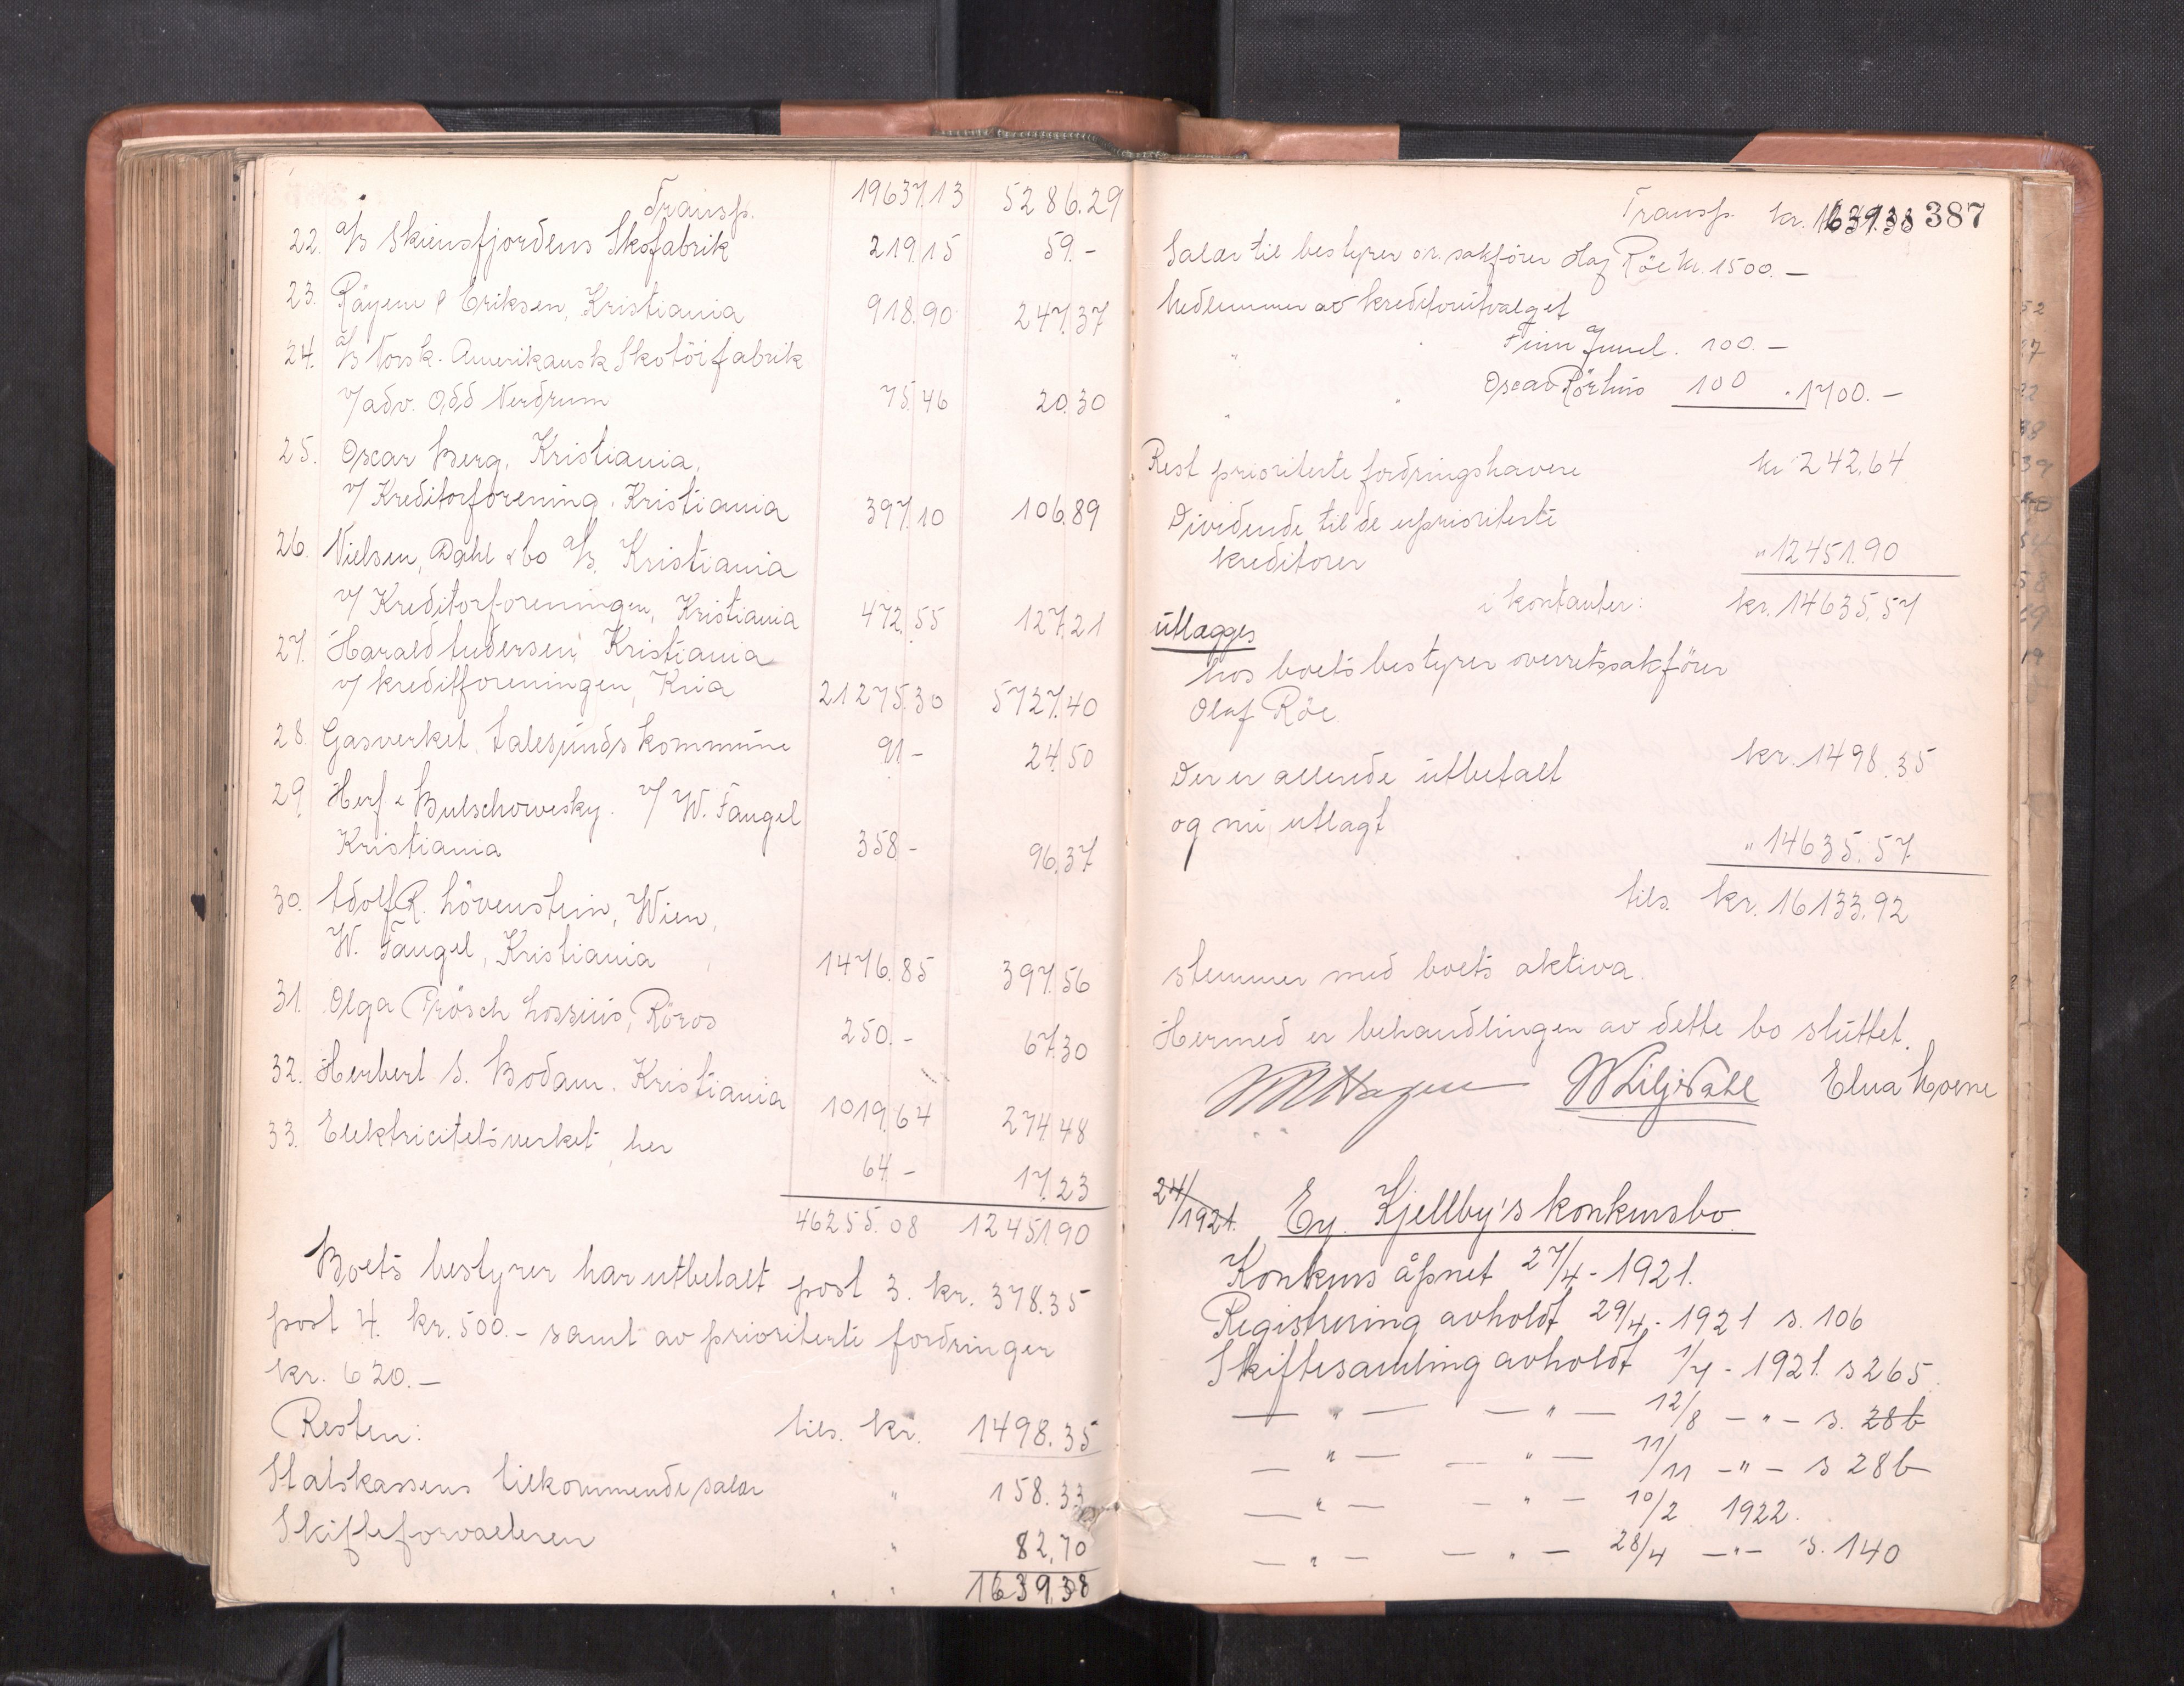 Transp. 19637.13 5286.29
22. A/S Skiensfjordens Skofabrik 219.15 59.-
23. Røyem & Eriksen, Kristiania 918.90 247.37
24. A/S Norsk-Amerikansk Skotöifabrik
v/ adv. Odd Nerdrum 75.46 20.30
25. Oscar Berg, Kristiania,
v/ Kreditorforening, Kristiania 397.10 106.89
26. Nielsen, Dahl & Co A/S. Kristiania
v/ Kreditorforeningen, Kristiania 472.55 127.21
27. Harald Andersen, Kristiania
v/ kreditforeningen, Kria 21275.30 5727.40
28. Gasverket Aalesunds kommune 91- 24.50
29. Herf & Bulschowsky. v/ W. Fangel
Kristiania 358- 96.37
30. Adolf R. Lövenstein, Wien,
W. Fangel, Kristiania 1476.85 397.56
31. Olga Prösch Lossius, Röros 250.- 67.30
32. Herbert S. Bodam. Kristiania 1019.64 274.48
33. Elektricitetsverket, her 64- 17.23
46255.08 12451.90
Boets bestyrer har utbetalt post 3. kr. 378.35
post 4. kr. 500.- samt av prioriterte fordringer
kr. 620.-
tils. kr. 1498.35
Resten:
Statskassens tilkommende salær " 158.33
Skifteforvalteren " 82,70
" " 1639.38
Transp. kr. 1639.38 387
Salær til bestyrer or.sakförer Olaf Röe kr. 1500.-
Medlemmer av kreditorutvalget
" " Finn Juuel. 100.-
" " Oscar Rörhus 100 " 1700.-
Rest prioriterte fordringshavere kr 242.64
Dividende til de uprioriterte
kreditorer " 12451.90
i kontanter: kr. 14635.57
utlægges
hos boets bestyrer overretssakförer
Olaf Röe.
Der er allerede utbetalt kr. 1498.35
og nu utlagt " 14635.57
tils. kr. 16133.92
stemmer med boets aktiva.
Hermed er behandlingen av dette bo sluttet.
W Liljedahl Elna
24/ 1921. Ey. Kjellby's konkursbo.
Konkurs åpnet 27/4-1921.
Registrering avholdt 29/4-1921 s. 106
Skiftesamling avholdt 1/7-1921. s 265.
— " — — " — 12/8 — " — s. 28b
— " — — " — 11/11 — " — s 28b
— " — — " — 10/2 1922.
— " — — " — 28/4 — " — s. 140